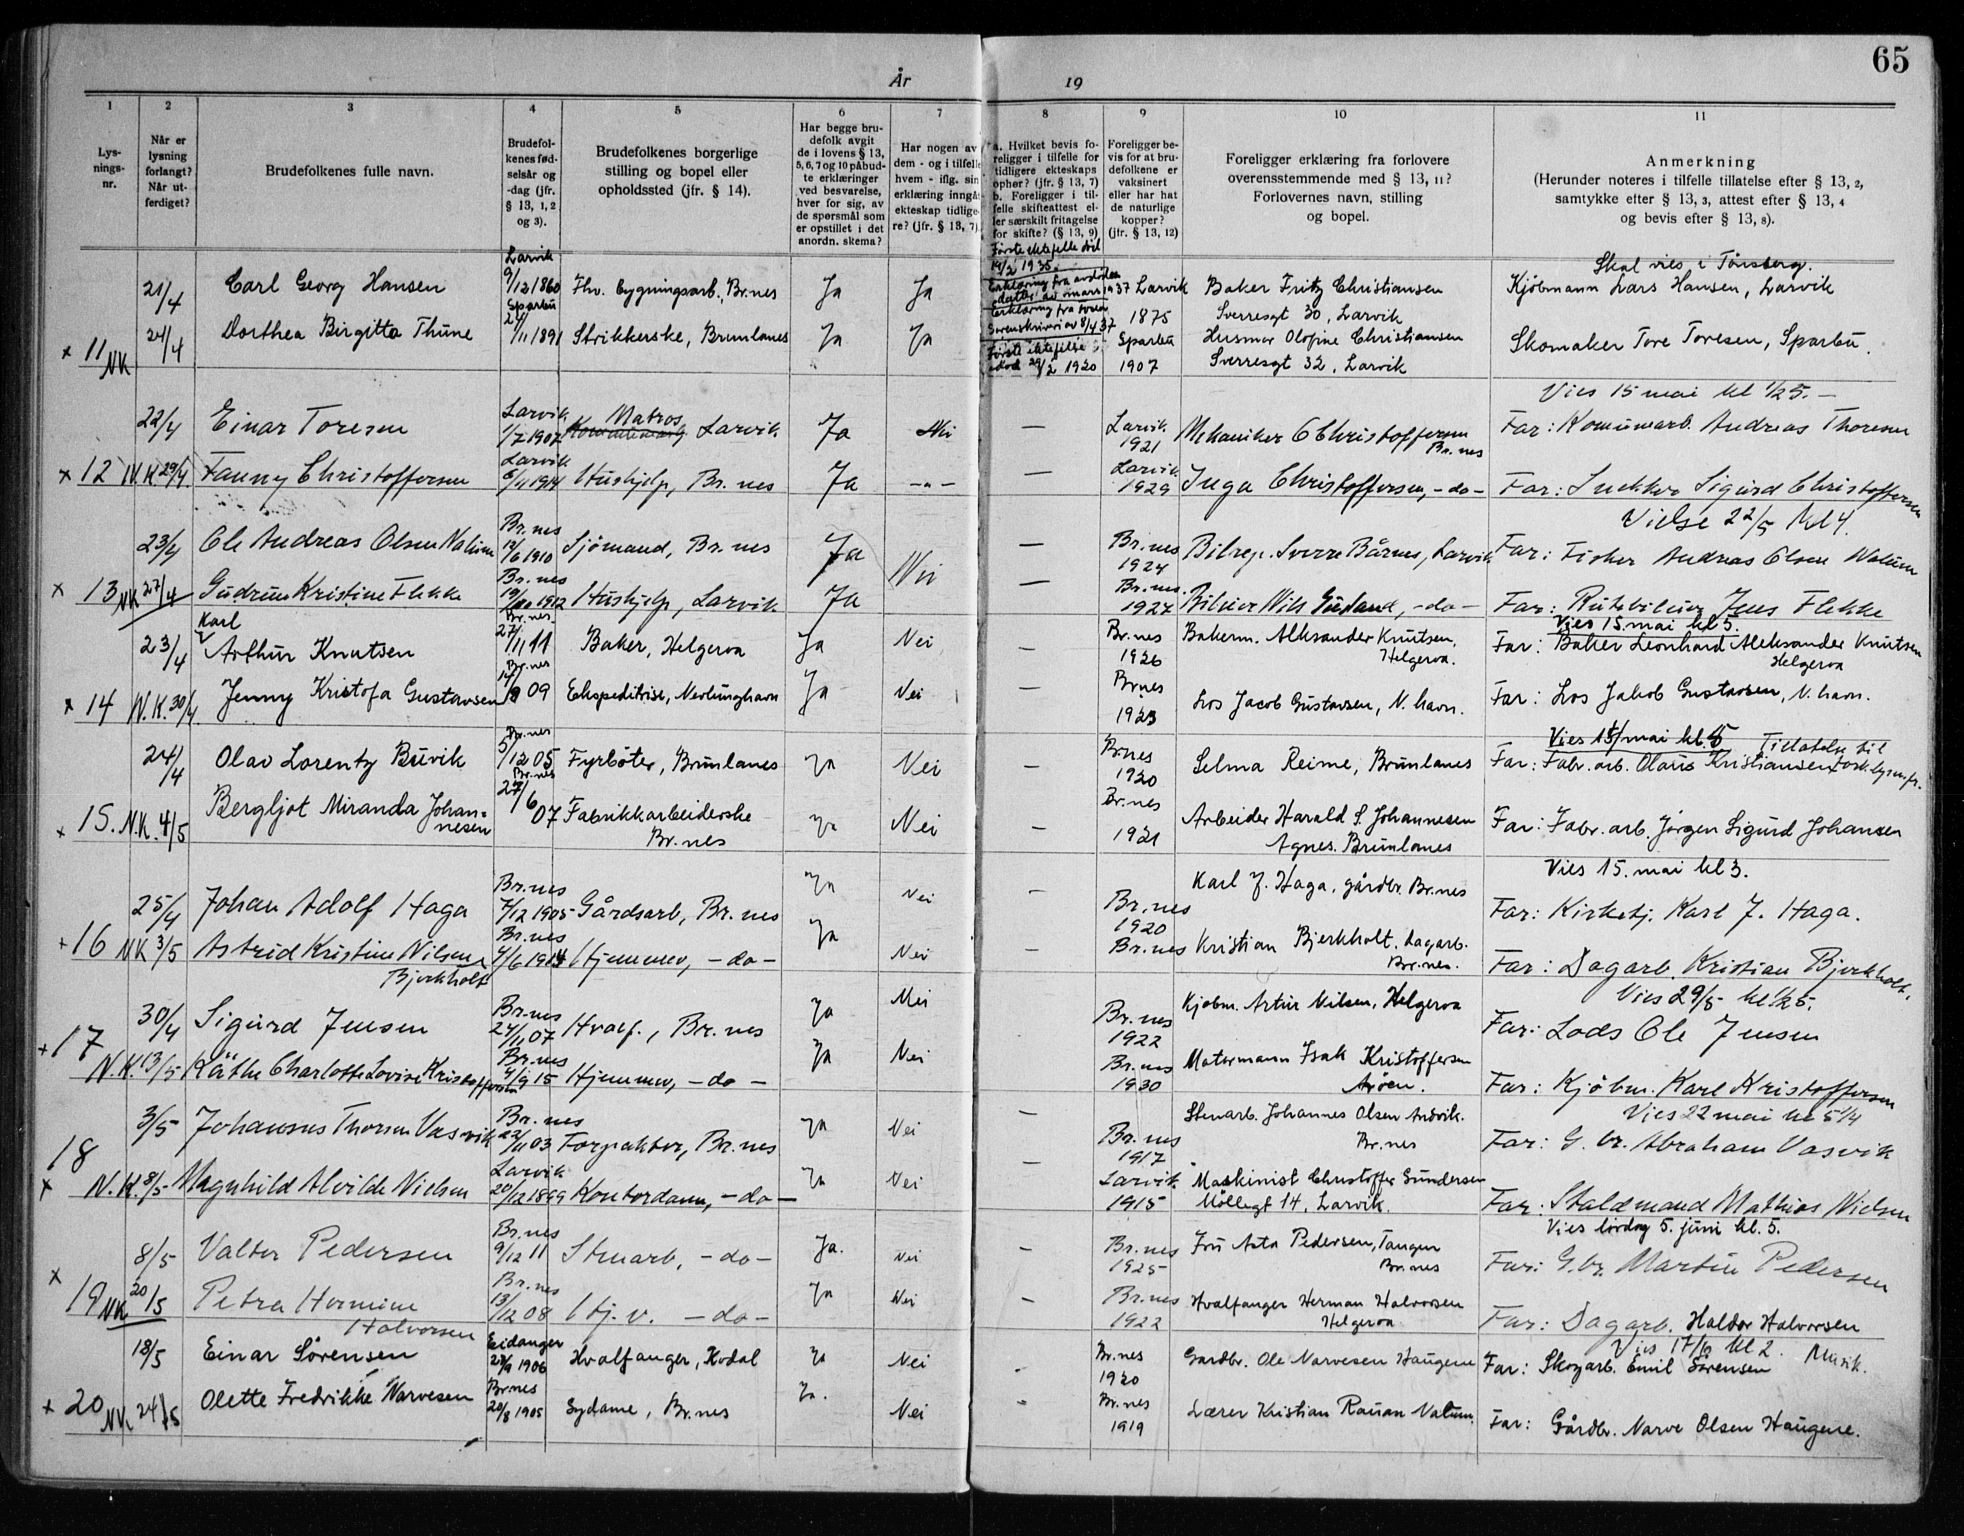 65
År 19
1 2 3 4 5 6 7 8 9 10 11
Lysningsnr.
Når er lysning forlangt? Når utferdiget?
Brudefolkenes fulle navn.
Brudefolkenes fødselsår og -dag (jfr. § 13, 1, 2 og 3).
Brudefolkenes borgerlige stilling og bopel eller opholdssted (jfr. § 14).
Har begge brudefolk avgit de i lovens § 13, 5, 6, 7 og 10 påbudte erklæringer ved besvarelse, hver for sig, av de spørsmål som er opstillet i det anordn. skema?
Har nogen av dem - og i tilfelle hvem - iflg. sin erklæring inngått ekteskap tidligere? (jfr. § 13, 7)
a. Hvilket bevis foreligger i tilfelle for tidligere ekteskaps ophør? (jfr. § 13, 7) b. Foreligger i tilfelle skifteattest eller særskilt fritagelse for skifte? (§ 13, 9)
Foreligger bevis for at brudefolkene er vaksinert eller har hat de naturlige kopper? (jfr. § 13, 12)
Foreligger erklæring fra forlovere overensstemmende med § 13, 11? Forlovernes navn, stilling og bopel.
Anmerkning (Herunder noteres i tilfelle tillatelse efter § 13, 2, samtykke efter § 13, 3, attest efter § 13, 4 og bevis efter § 13, 8).
Skal vies i Tønsberg.
21/4 Carl Georg Hansen Larvik 9/12 1860 Fhv. bygningsarb., Br.nes Ja Ja Første ektefelle død 19/2 1935. Erklæring fra avdødes datter av mars 1937 Larvik 1875 Baker Fritz Christiansen Sverresgt 30, Larvik Kjøbmann Lars Hansen, Larvik
x 11 NK 24/4 Dorthea Birgitta Thune Sparbu 24/11 1891 Strikkerske, Brunlanes Ja Ja Erklæring fra Sorenskriveri av 8/4 37 Første ektefelle død 29/2 1920 Sparbu 1907 Husmor Olofine Christiansen Sverresgt 32, Larvik Skomaker Tore Toresen, Sparbu.
Vies 15 mai kl 1/2 5. —
22/4 Einar Toresen Larvik 1/7 1907 Matros, Larvik Ja Nei — Larvik 1921 Mekaniker O Christoffersen Br.nes Far: Komunearb. Andreas Thoresen
x 12 N.K. 29/4 Fanny Christoffersen Larvik 5/11 1914 Hushjelp, Br.nes Ja -"- — Larvik 1929 Inga Christoffersen, -do- Far: Snekker Sigurd Christoffersen
Vielse 22/5 kl 4.
23/4 Ole Andreas Olsen Nalum Br.nes 12/6 1910 Sjömand, Br.nes Ja Nei — Br.nes 1924 Bilrep. Sverre Bårnes, Larvik Far: Fisker Andreas Olsen Nalum
x 13 NK 27/4 Gudrun Kristine Flekke Br.nes 19/10 1912 Hushjelp, Larvik Ja — Br.nes. 1927 Bileier Nils Gusland, -do- Far: Rutebileier Jens Flekke
Vies 15. mai kl 5.
23/4 Karl Arthur Knutsen Br.nes 27/11 11 Baker, Helgeroa Ja Nei — Br.nes 1926 Bakerm. Aleksander Knutsen, Helgeroa. Far: Baker Leonhard Aleksander Knutsen Helgeroa
x 14 N.K. 30/4 Jenny Kristofa Gustavsen Br.nes 14/8 09 Ekspeditrise, Nevlunghavn Ja Nei — Br.nes 1923 Los Jacob Gustavsen, N. havn. Far: Los Jakob Gustavsen, N. havn.
Vies 15/mai kl. 5 Tillatelse til
24/4 Olav Lorentz Buvik Br.nes 5/12 05 Fyrbøter, Brunlanes Ja Nei — Br.nes 1920 Selma Reime, Brunlanes Far: Fabr. arb. Olaus Kristiansen
x 15. N.K. 4/5 Bergljot Miranda Johannesen Br.nes 27/6 07 Fabrikkarbeiderske Br.nes Ja Nei — Br.nes 1921 Arbeider Harald S. Johannesen Agnes. Brunlanes Far: Fabr. arb. Jørgen Sigurd Johansen
Vies 15. mai kl 3.
25/4 Johan Adolf Haga Br.nes 7/12 1905 Gårdsarb, Br.nes Ja Nei — Br.nes 1920 Karl J. Haga, gårdbr. Br.nes Far: Kirketj. Karl J. Haga.
x 16 NK 3/5 Astrid Kristine Nilsen Bjerkholt Br.nes 4/6 1914 Hjemmev, -do- Ja Nei — Br.nes Kristian Bjerkholt, dagarb. Br.nes. Far: Dagarb. Kristian Bjerkholt.
Vies 29/5 kl 1/2 5.
30/4 Sigurd Jensen Br.nes 24/11 07 Hvalf., Br.nes Ja Nei Br.nes 1922 Kjøbm. Artur Nilsen, Helgeroa Far: Lods Ole Jensen
x 17 N.K. 13/5 Käthe Charlotte Lovise Kristoffersen Br.nes 4/9 15 Hjemmev, -do- Ja Nei Br.nes 1930 Motormann Isak Kristoffersen Arøen. Far: Kjøbm. Karl Kristoffersen
Vies 22 mai kl 5 1/4
3/5 Johannes Thorsen Vasvik Br.nes 22/11 03 Forpakter, Br.nes Ja Nei — Br.nes 1917 Stenarb. Johannes Olsen Anvik. Br.nes Far: G. br. Abraham Vasvik
x 18 N.K. 8/5 Magnhild Alvilde Nielsen Larvik 20/12 1899 Kontordame, -do- Ja Nei — Larvik 1915 Maskinist Christoffer Gundersen Møllegt 14, Larvik. Far: Staldmand Mathias Nielsen
Vies lørdag 5. juni kl. 5.
8/5 Valter Pedersen Br.nes 9/12 11 Stenarb, -do- Ja. Nei — Br.nes 1925 Fru Asta Pedersen, Tangen Br.nes Far: G. br. Martin Pedersen
x 19 NK 20/5 Petra Hermine Halvorsen Br.nes 13/12 08 Hj. v. -do- Ja Nei — Br.nes 1922 Hvalfanger Herman Halvorsen Helgeroa Far: Dagarb. Haldor Halvorsen
Vies 17/6 kl 2. Musik.
18/5 Einar Sørensen Eidanger 23/9 1906 Hvalfanger, Kodal Ja Nei - Br.nes 1920 Gardbr. Ole Narvesen Haugene Far: Skogarb. Emil Sørensen
x 20 NK 24/5 Olette Fredrikke Narvesen Br.nes 20/8 1905 Sydame, Br.nes Ja. Nei - Br.nes 1919 Lærer Kristian Rauan Nalum. Far: Gårdbr. Narve Olsen Haugene.